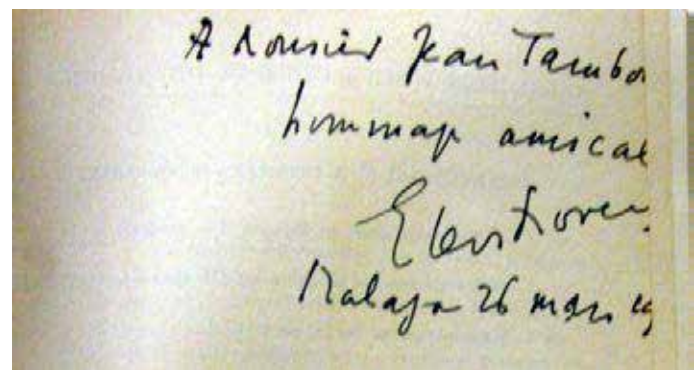 A Monsieur Jean Tambo
hommage amical
Malaga 26 mars 19